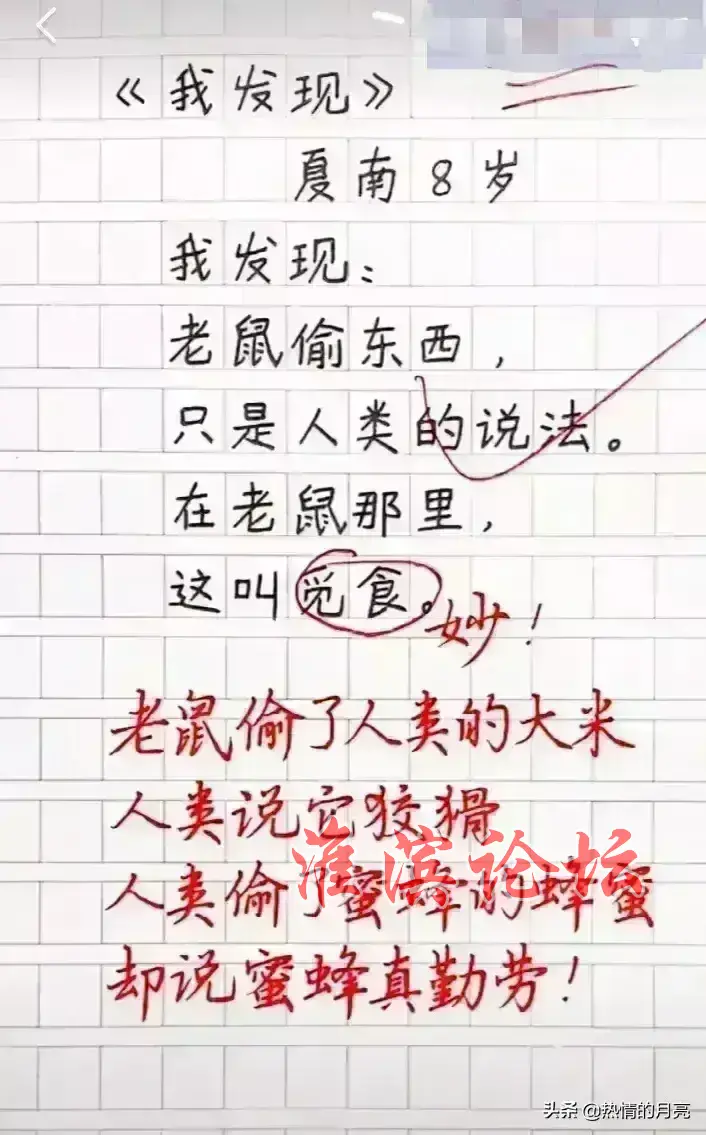 《我发现》
夏南 8 岁
我发现：
老鼠偷东西，
只是人类的说法。
在老鼠那里，
这叫觅食。
妙！
老鼠偷了人类的大米
人类说它狡猾
人类偷了蜜蜂的蜂蜜
却说蜜蜂真勤劳！
淮滨论坛
头条 @热情的月亮